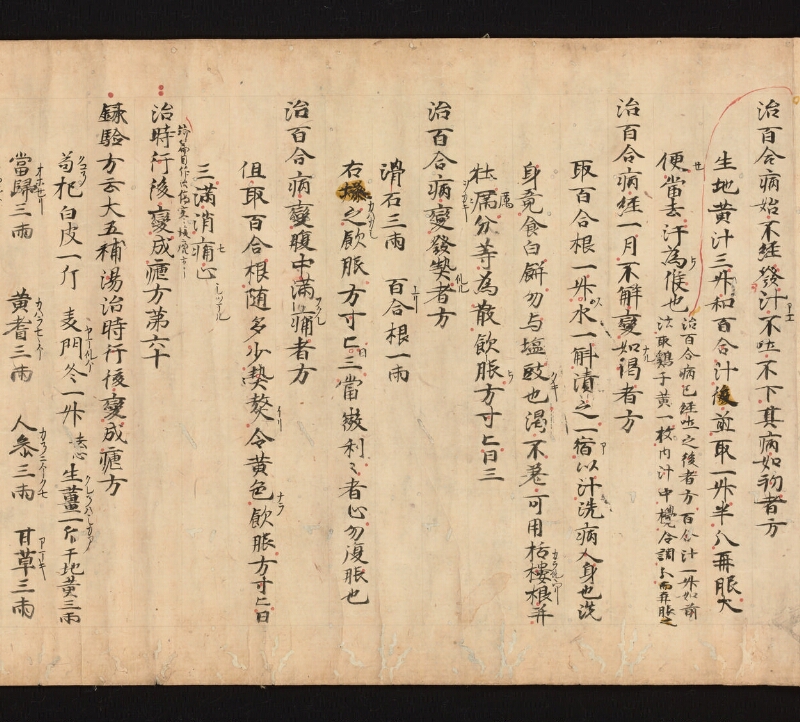 治百合病始不經發汁不吐不下其病如初者方
生地黄汁三升和百合汁後煎取一升半分再服大
便當去汁為候也
治百合病已經吐之後者方百合汁一升如前
法取鷄子黄一枚内汁中攪令調分而再服之
治百合病經一月不解變如渇者方
取百合根一升水一斛漬之一宿以汁洗病人身也洗
身竟食白餅勿与塩豉也渇不差可用栝樓根并
牡厲分等為散飲服方寸匕日三
治百合病變發熱者方
滑石三兩　百合根一兩
右燥之飲服方寸匕日三當微利〻者止勿復服也
治百合病變腹中滿痛者方
但取百合根随多少熱熬令黄色飲服方寸匕日
三滿消痛止
治時行後變成瘧方第六十
録驗方云大五補湯治時行後變成瘧方
苟杞白皮一斤　麦門冬一升去心　生薑一斤　干地黄三兩
當歸三兩　黄耆三兩　人參三兩　甘草三兩